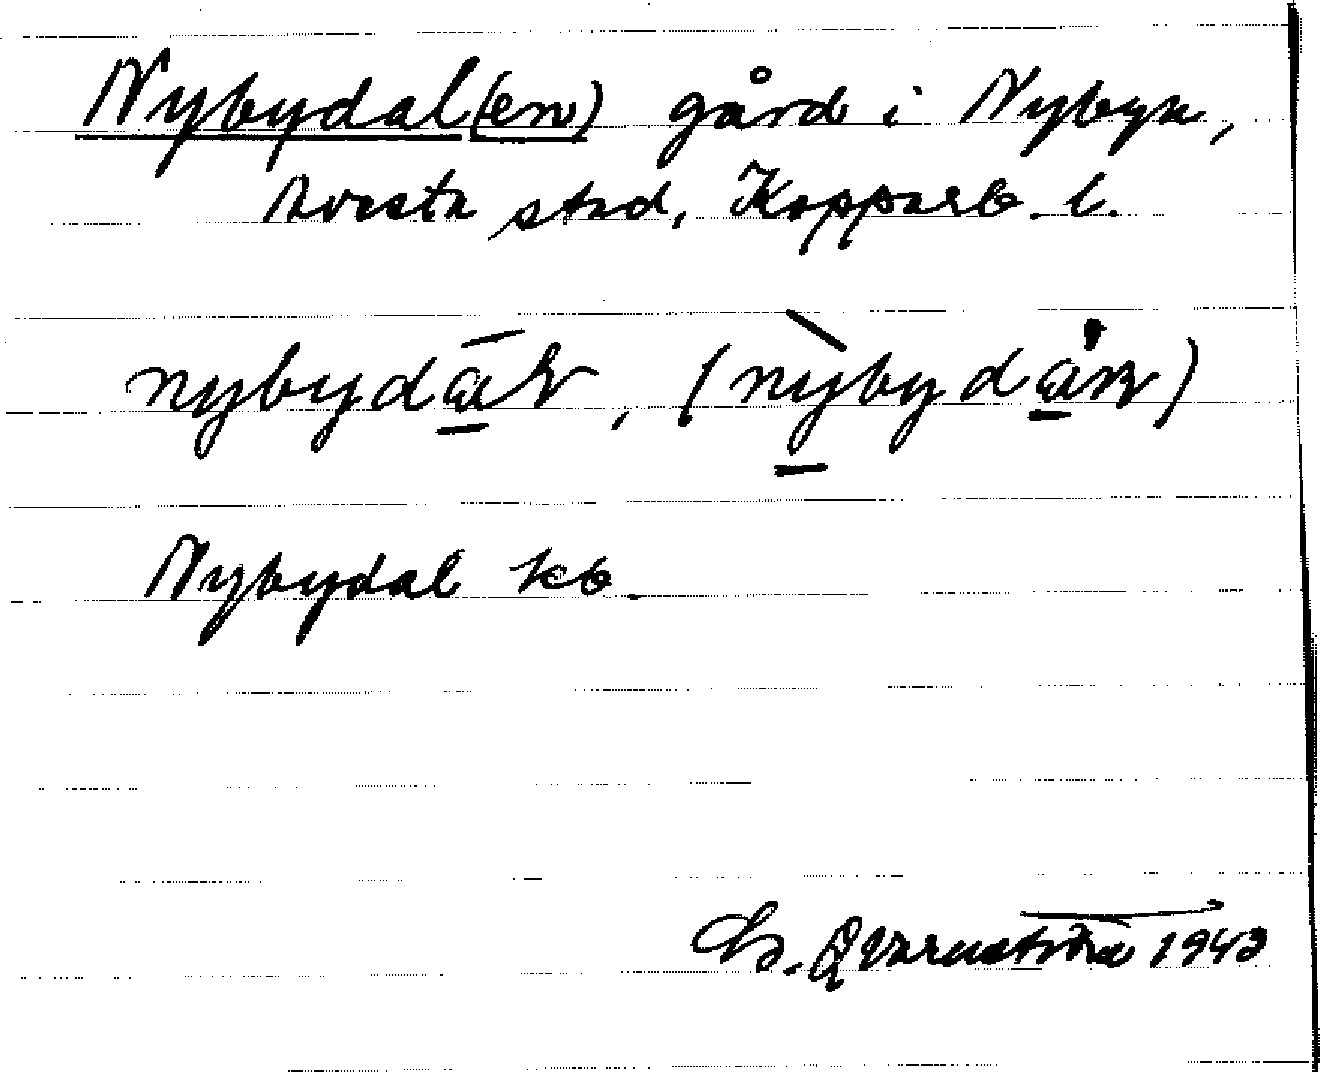 Nybydal(en) gård i Nybyn,
Avesta stad, Kopparb. l.
nybydál, (nỳbydȧn)
Nybydal kb.
G. Qvarnström 1943